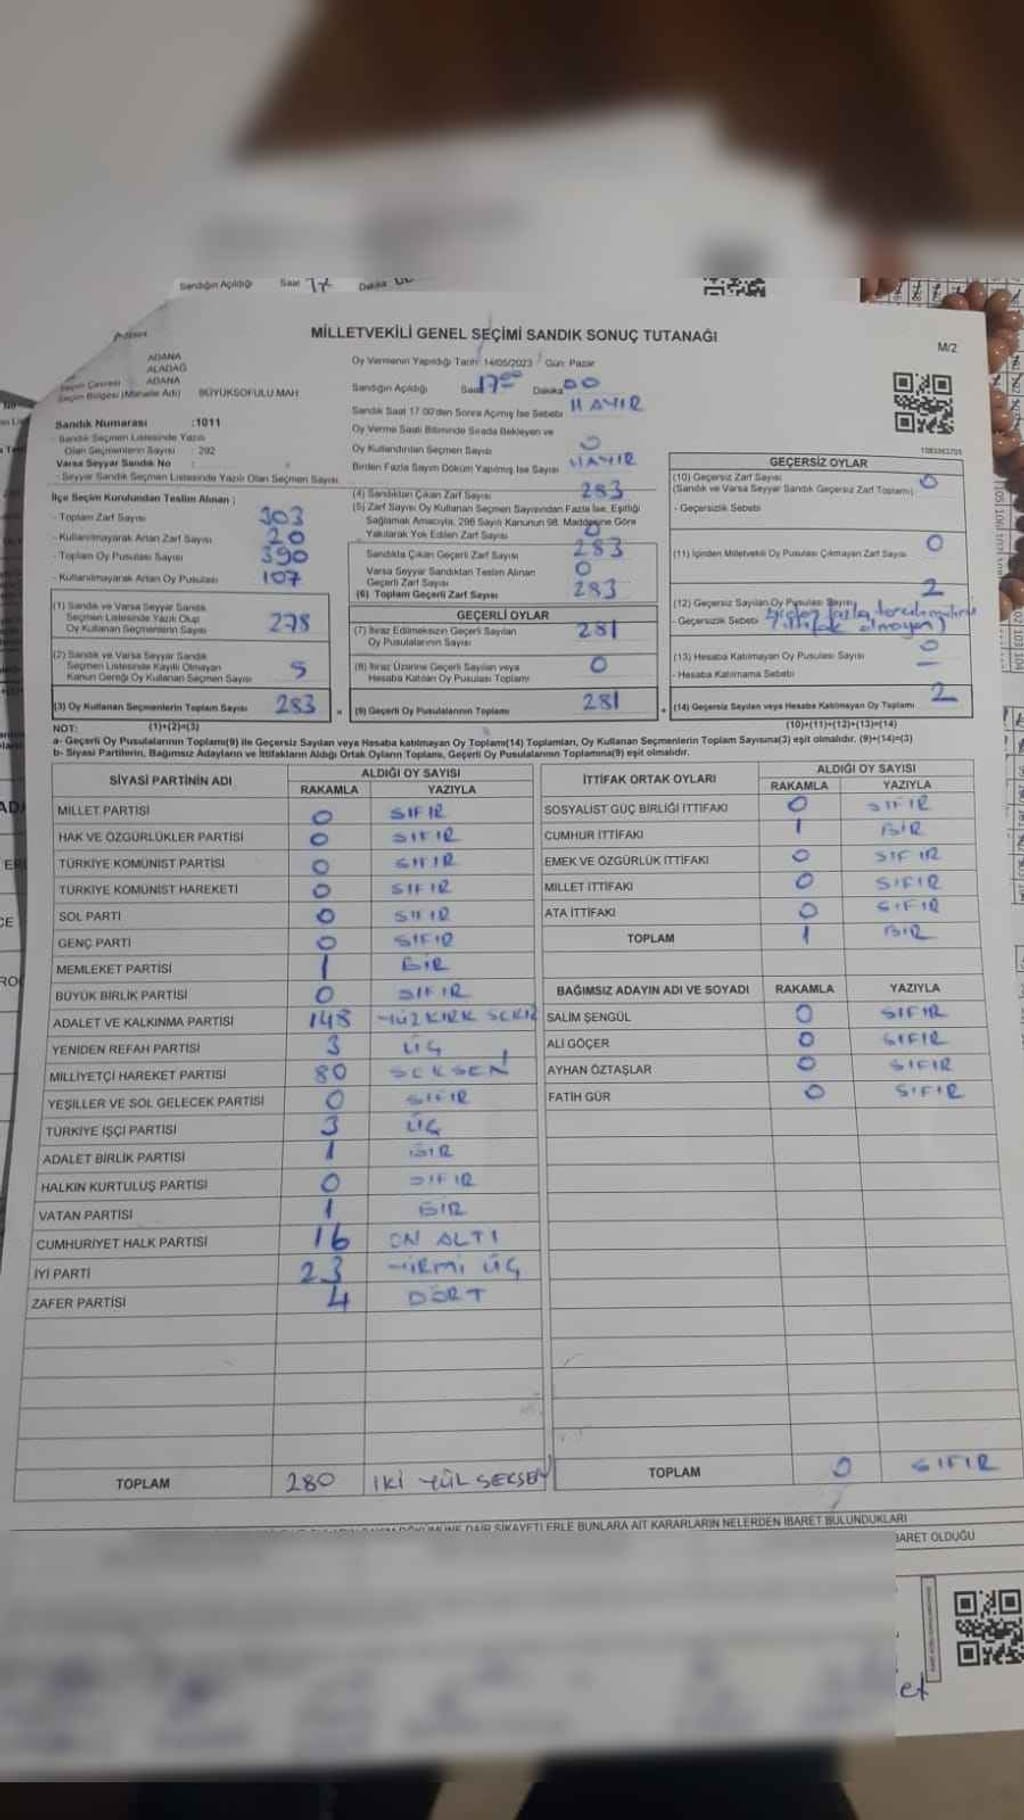 Sandığın Açıldığı Saat 17 Dakika 00
MİLLETVEKİLİ GENEL SEÇİMİ SANDIK SONUÇ TUTANAĞI
M/2
ADANA
ALADAĞ
Seçim Çevresi ADANA
Seçim Bölgesi (Mahalle Adı) BÜYÜKSOFULU MAH
Oy Vermenin Yapıldığı Tarih: 14/05/2023 Gün: Pazar
Sandığın Açıldığı Saat 17 00 Dakika 00
Sandık Saat 17.00'den Sonra Açılmış İse Sebebi HAYIR
Oy Verme Saati Bitiminde Sırada Bekleyen ve
Oy Kullandırılan Seçmen Sayısı 0
Birden Fazla Sayım Döküm Yapılmış İse Sayısı HAYIR
Sandık Numarası :1011
- Sandık Seçmen Listesinde Yazılı
Olan Seçmenlerin Sayısı : 292
Varsa Seyyar Sandık No
- Seyyar Sandık Seçmen Listesinde Yazılı Olan Seçmen Sayısı
İlçe Seçim Kurulundan Teslim Alınan ;
- Toplam Zarf Sayısı 303
- Kullanılmayarak Artan Zarf Sayısı 20
- Toplam Oy Pusulası Sayısı 390
- Kullanılmayarak Artan Oy Pusulası 107
(1) Sandık ve Varsa Seyyar Sandık
Seçmen Listesinde Yazılı Olup
Oy Kullanan Seçmenlerin Sayısı 278
(2) Sandık ve Varsa Seyyar Sandık
Seçmen Listesinde Kayıtlı Olmayan
Kanun Gereği Oy Kullanan Seçmen Sayısı 5
(3) Oy Kullanan Seçmenlerin Toplam Sayısı 283
(4) Sandıktan Çıkan Zarf Sayısı 283
(5) Zarf Sayısı Oy Kullanan Seçmen Sayısından Fazla İse, Eşitliği
Sağlamak Amacıyla, 298 Sayılı Kanunun 98. Maddesine Göre
Yakılarak Yok Edilen Zarf Sayısı 0
Sandıkta Çıkan Geçerli Zarf Sayısı 283
Varsa Seyyar Sandıktan Teslim Alınan
Geçerli Zarf Sayısı 0
(6) Toplam Geçerli Zarf Sayısı 283
GEÇERLİ OYLAR
(7) İtiraz Edilmeksizin Geçerli Sayılan
Oy Pusulalarının Sayısı 281
(8) İtiraz Üzerine Geçerli Sayılan veya
Hesaba Katılan Oy Pusulası Toplamı 0
(9) Geçerli Oy Pusulalarının Toplamı 281
GEÇERSİZ OYLAR
(10) Geçersiz Zarf Sayısı
(Sandık ve Varsa Seyyar Sandık Geçersiz Zarf Toplamı) 0
- Geçersizlik Sebebi
(11) İçinden Milletvekili Oy Pusulası Çıkmayan Zarf Sayısı 0
(12) Geçersiz Sayılan Oy Pusulası Sayısı 2
- Geçersizlik Sebebi fazla
ittifak olmayan)
(13) Hesaba Katılmayan Oy Pusulası Sayısı 0
- Hesaba Katılmama Sebebi -
(14) Geçersiz Sayılan veya Hesaba Katılmayan Oy Toplamı 2
NOT: (1)+(2)=(3) (10)+(11)+(12)+(13)=(14)
a- Geçerli Oy Pusulalarının Toplamı(9) ile Geçersiz Sayılan veya Hesaba katılmayan Oy Toplamı(14) Toplamları, Oy Kullanan Seçmenlerin Toplam Sayısına(3) eşit olmalıdır. (9)+(14)=(3)
b- Siyasi Partilerin, Bağımsız Adayların ve İttifakların Aldığı Ortak Oyların Toplamı, Geçerli Oy Pusulalarının Toplamına(9) eşit olmalıdır.
SİYASİ PARTİNİN ADI ALDIĞI OY SAYISI
RAKAMLA YAZIYLA
MİLLET PARTİSİ 0 SIFIR
HAK VE ÖZGÜRLÜKLER PARTİSİ 0 SIFIR
TÜRKİYE KOMÜNİST PARTİSİ 0 SIFIR
TÜRKİYE KOMÜNİST HAREKETİ 0 SIFIR
SOL PARTİ 0 SIFIR
GENÇ PARTİ 0 SIFIR
MEMLEKET PARTİSİ 1 BİR
BÜYÜK BİRLİK PARTİSİ 0 SIFIR
ADALET VE KALKINMA PARTİSİ 148 YÜZ KIRK SEKİZ
YENİDEN REFAH PARTİSİ 3 ÜÇ
MİLLİYETÇİ HAREKET PARTİSİ 80 SEKSEN
YEŞİLLER VE SOL GELECEK PARTİSİ 0 SIFIR
TÜRKİYE İŞÇİ PARTİSİ 3 ÜÇ
ADALET BİRLİK PARTİSİ 1 BİR
HALKIN KURTULUŞ PARTİSİ 0 SIFIR
VATAN PARTİSİ 1 BİR
CUMHURİYET HALK PARTİSİ 16 ON ALTI
İYİ PARTİ 23 YİRMİ ÜÇ
ZAFER PARTİSİ 4 DÖRT
TOPLAM 280 İKİ YÜZ SEKSEN
İTTİFAK ORTAK OYLARI ALDIĞI OY SAYISI
RAKAMLA YAZIYLA
SOSYALİST GÜÇ BİRLİĞİ İTTİFAKI 0 SIFIR
CUMHUR İTTİFAKI 1 BİR
EMEK VE ÖZGÜRLÜK İTTİFAKI 0 SIFIR
MİLLET İTTİFAKI 0 SIFIR
ATA İTTİFAKI 0 SIFIR
TOPLAM 1 BİR
BAĞIMSIZ ADAYIN ADI VE SOYADI RAKAMLA YAZIYLA
SALİM ŞENGÜL 0 SIFIR
ALİ GÖÇER 0 SIFIR
AYHAN ÖZTAŞLAR 0 SIFIR
FATİH GÜR 0 SIFIR
TOPLAM 0 SIFIR
DAİR ŞİKAYETLERLE BUNLARA AİT KARARLARIN NELERDEN İBARET BULUNDUKLARI
BARET OLDUĞU
et